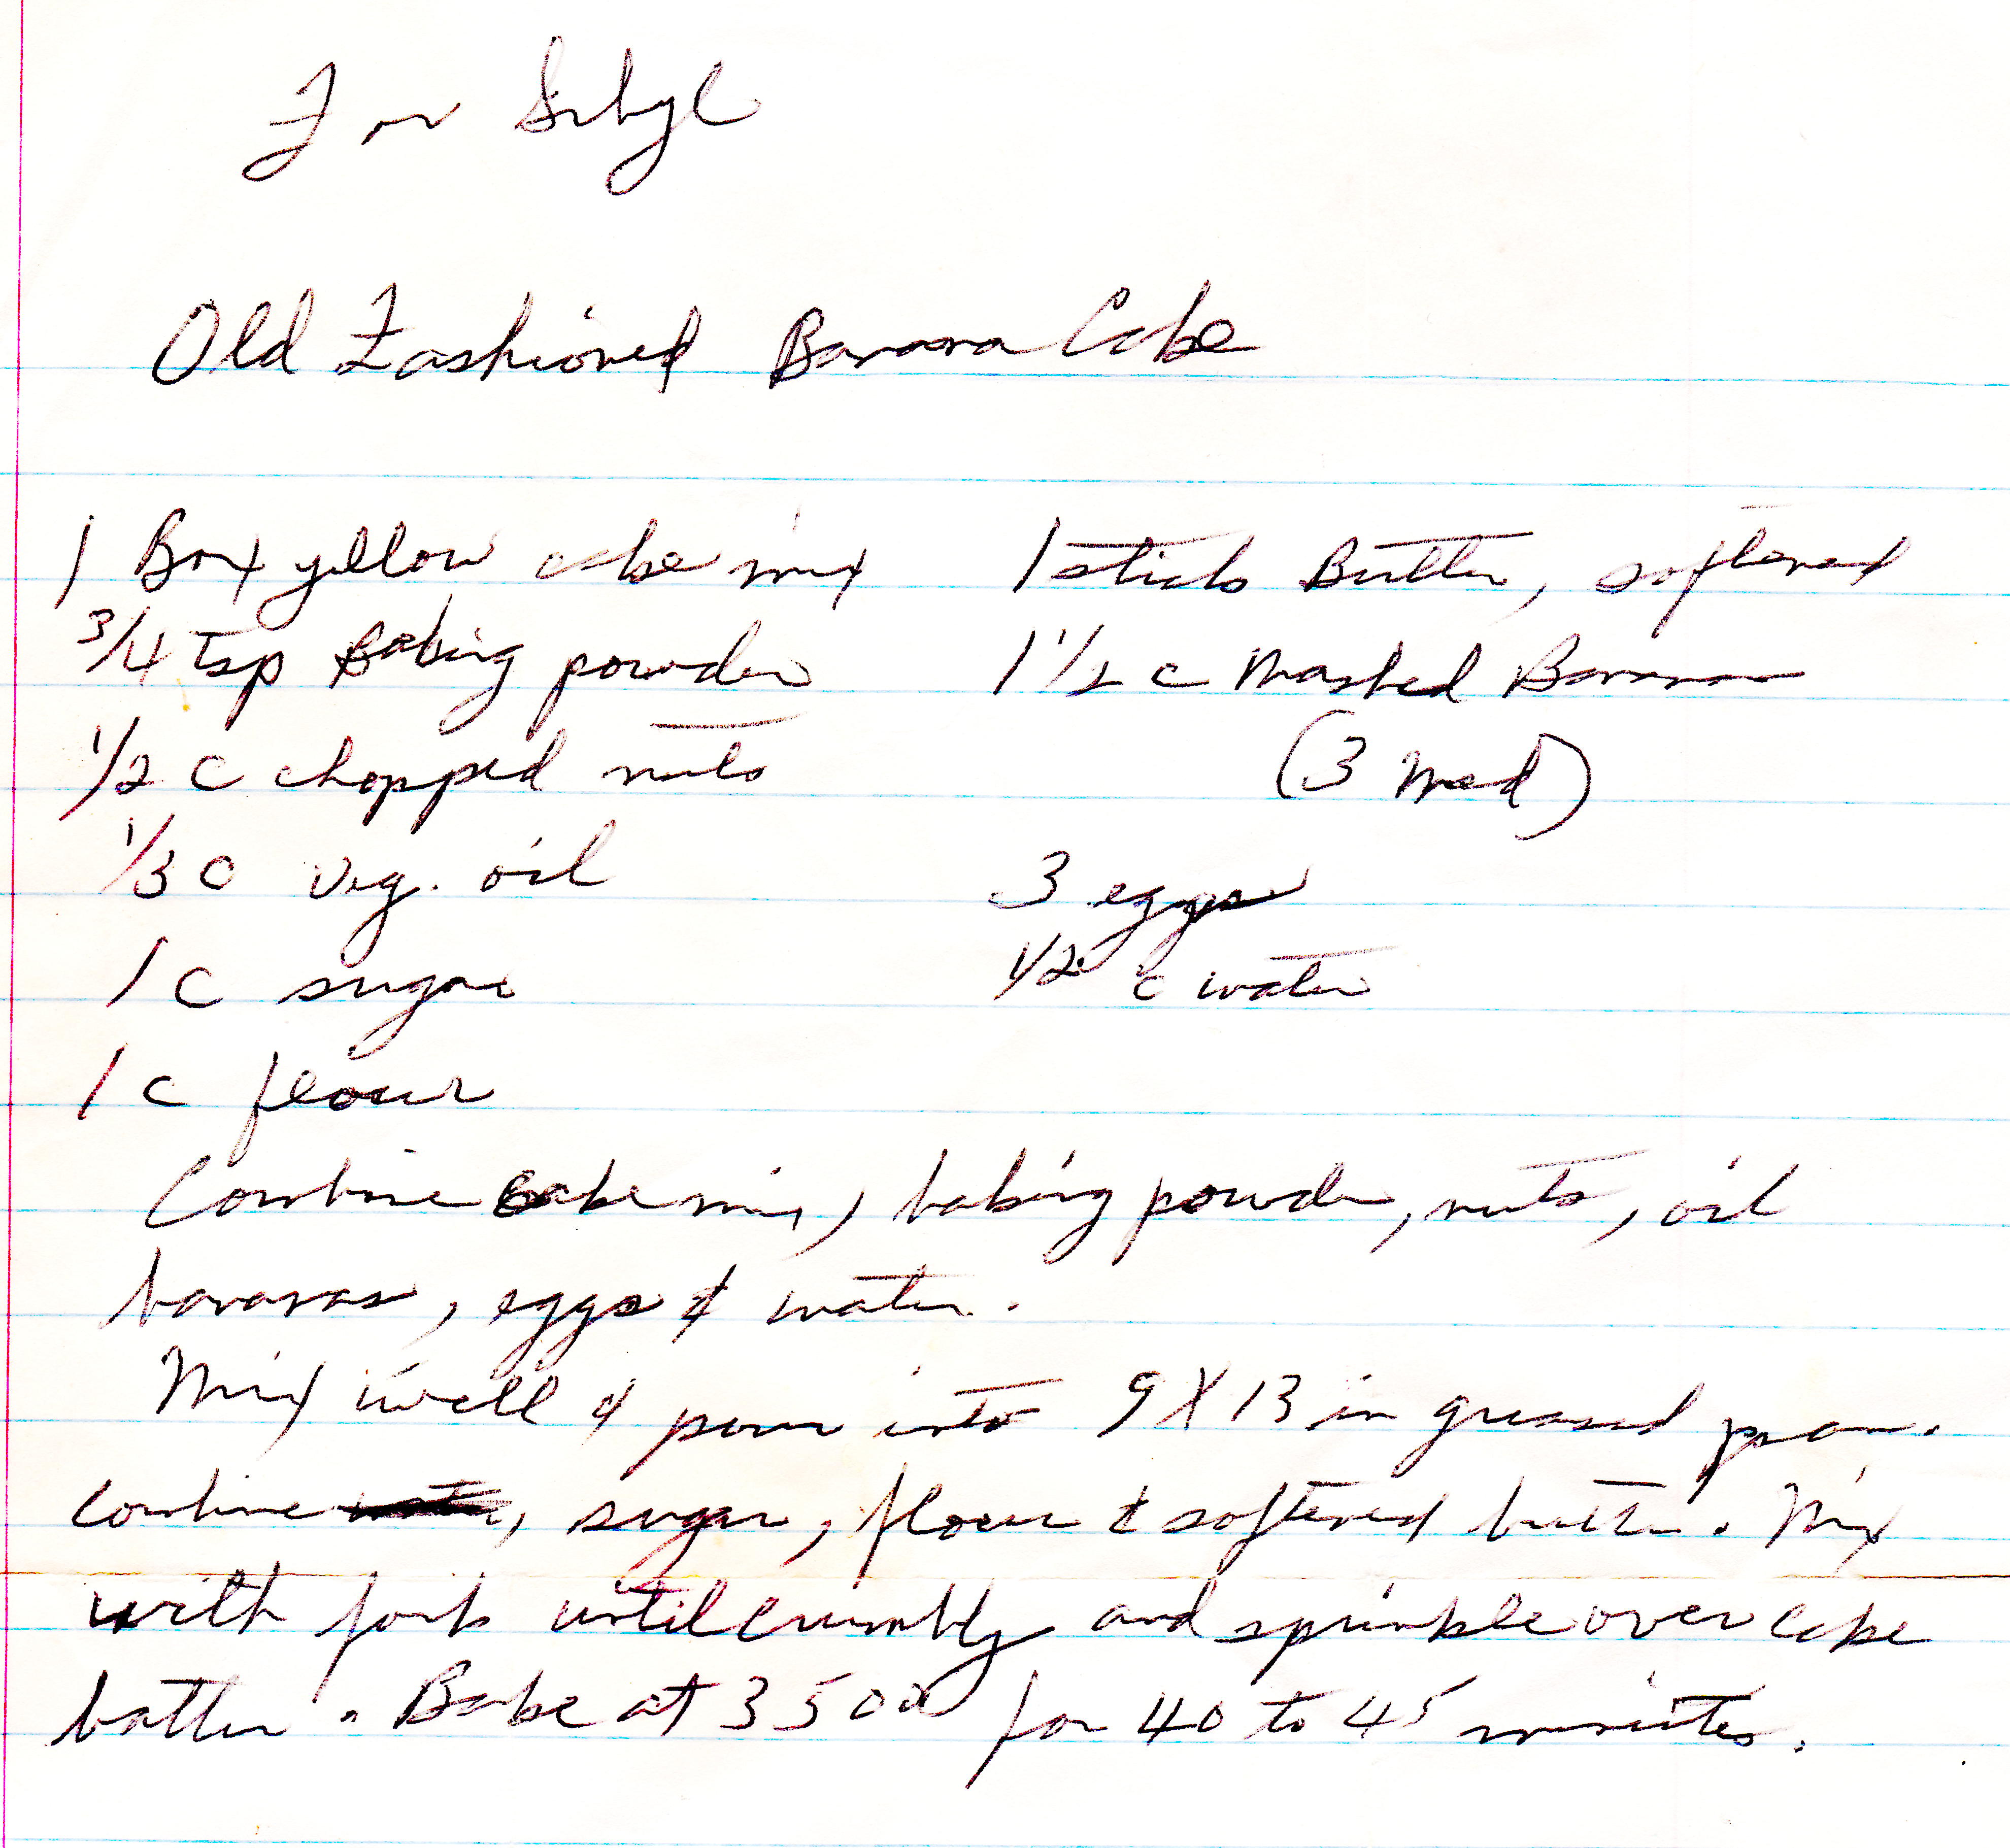 For Sibyl
Old Fashioned Banana Cake
1 Box yellow cake mix 1 stick Butter, softened
3/4 tsp Baking powder 1 1/2 c Mashed Banana
1/2 c chopped nuts (3 Med)
1/3 c Veg. oil 3 eggs
1 c sugar 1/2 c water
1 c flour
Combine cake mix, baking powder, nuts, oil
bananas, eggs & water.
Mix well & pour into 9 X 13 in greased pan.
Combine , sugar, flour & softened butter. Mix
with fork until crumbly and sprinkle over cake
batter. Bake at 350° for 40 to 45 minutes.